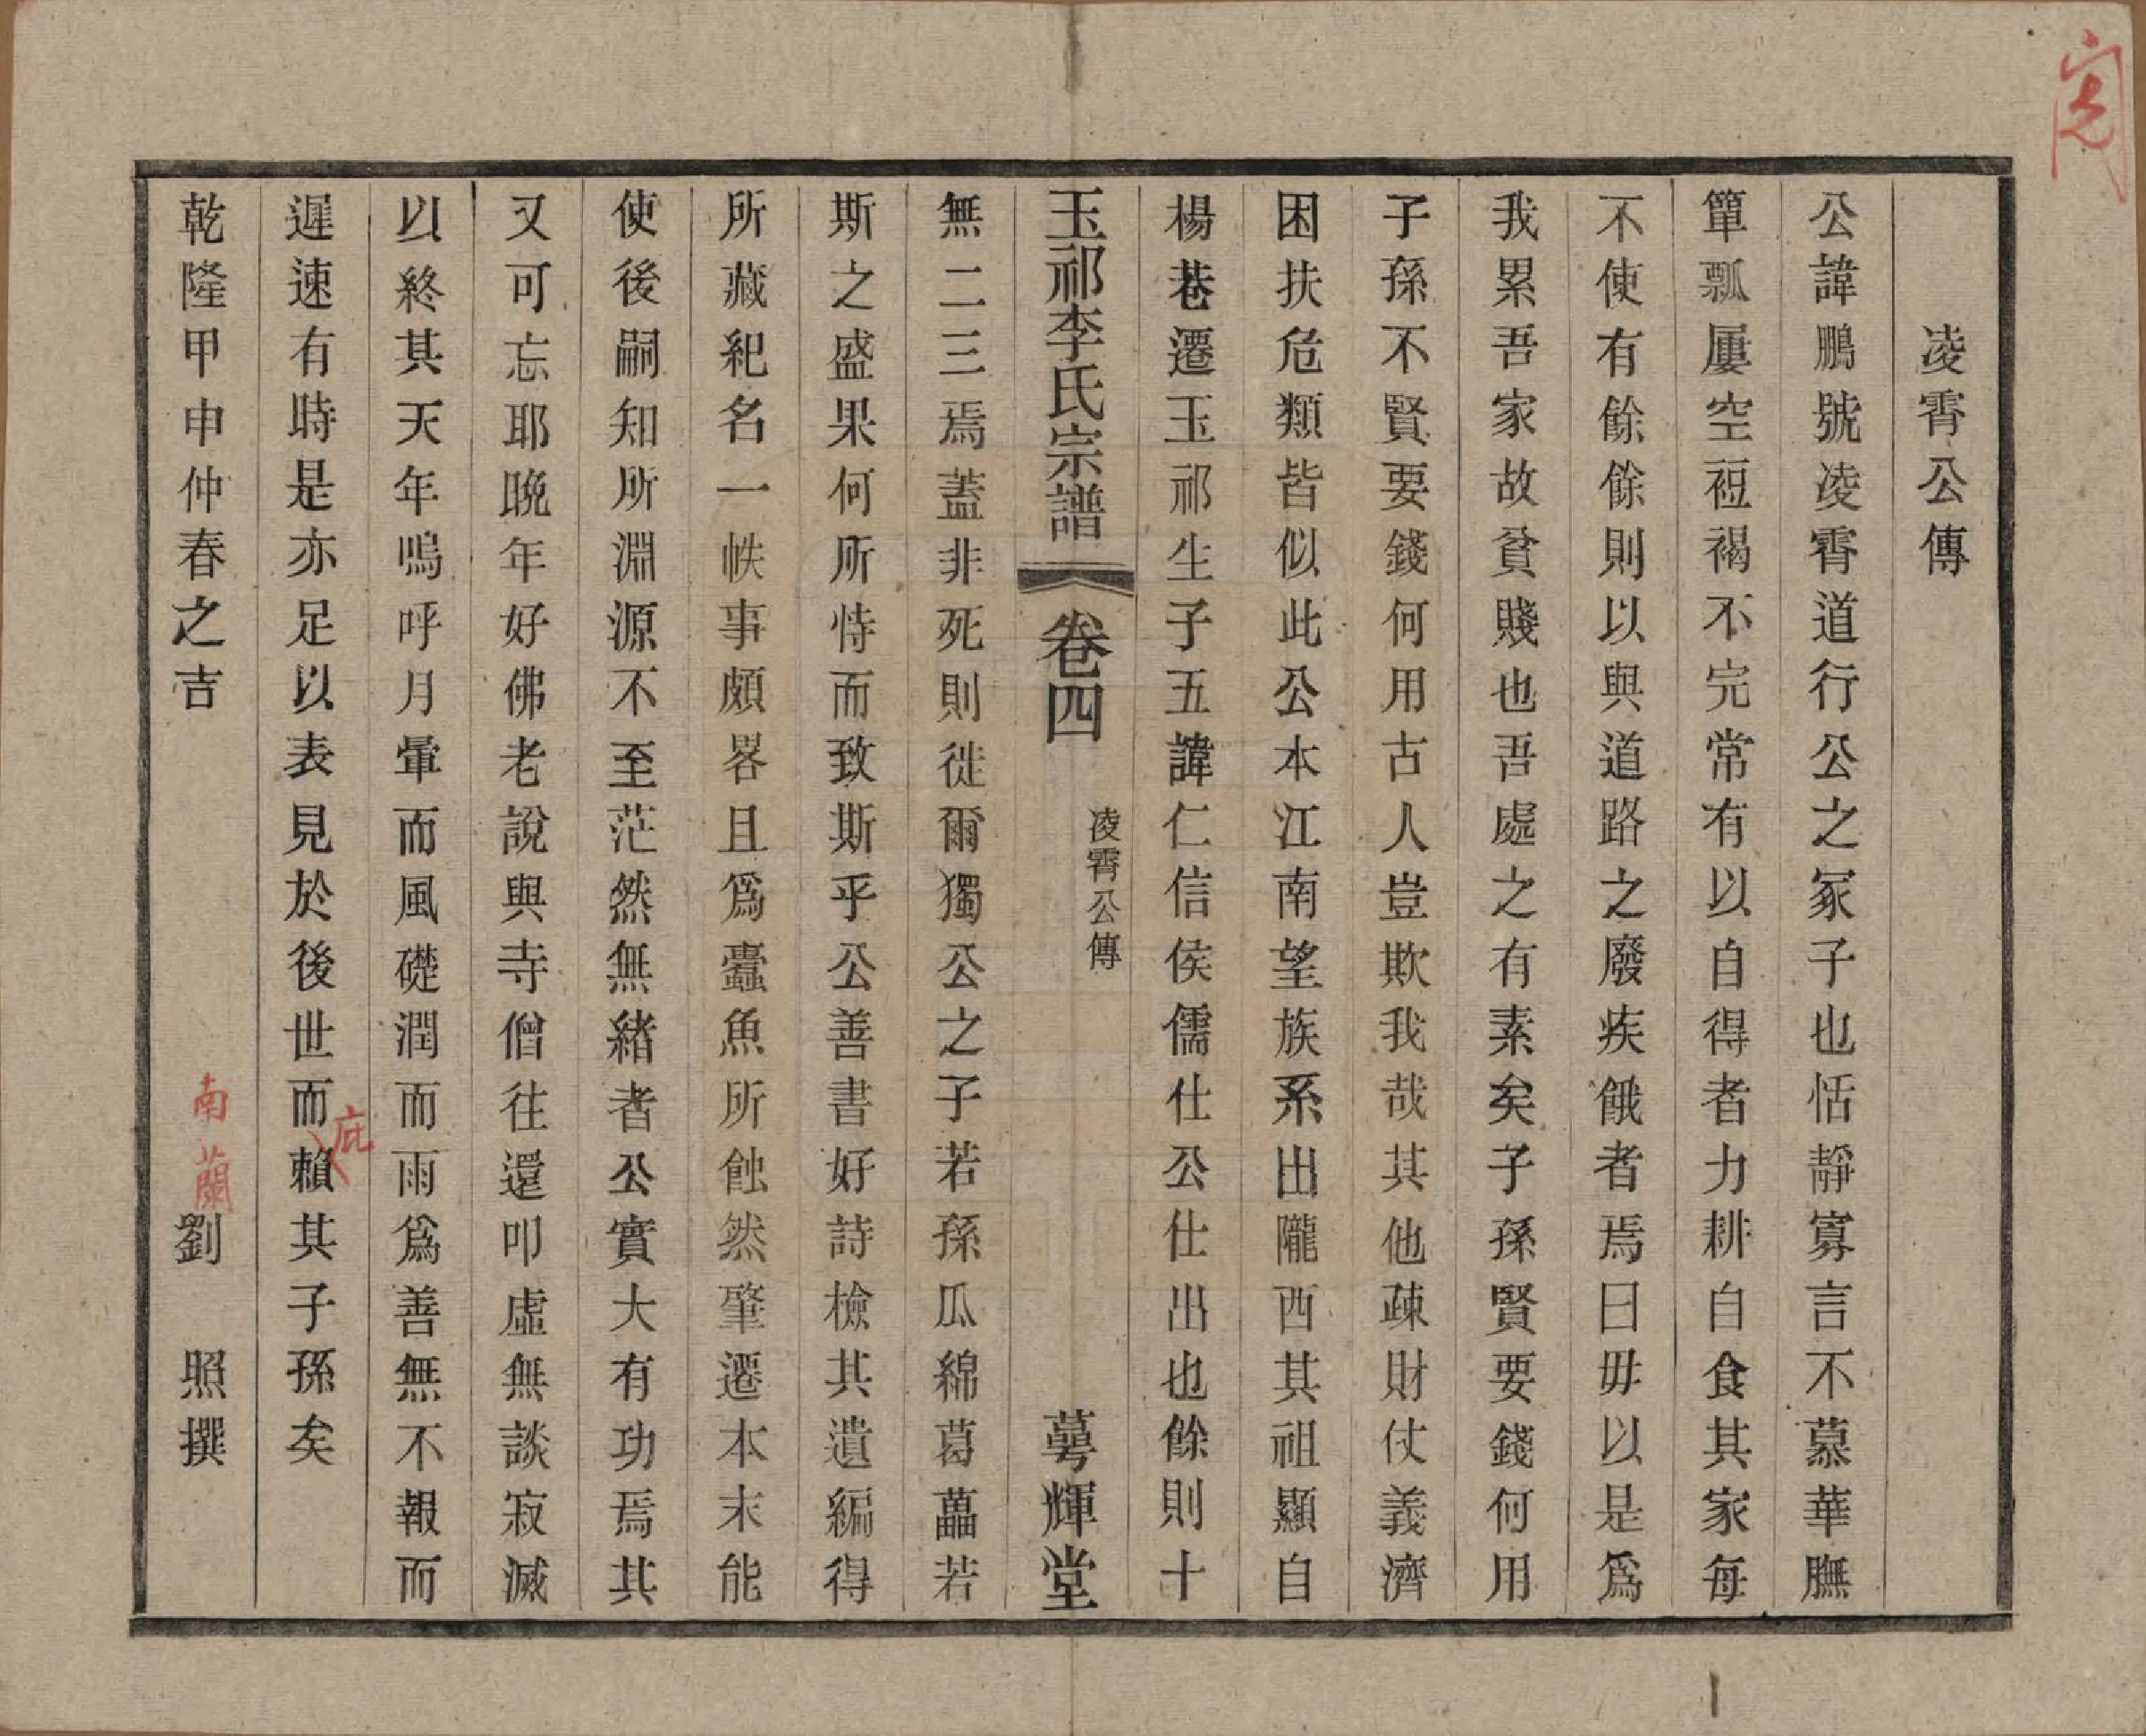 凌霄公傳
公諱鵬號凌霄道行公之冢子也恬靜寡言不慕華膴
簞瓢屢空裋褐不完常有以自得者力耕自食其家每
不使有餘餘則以與道路之廢疾餓者焉曰毋以是爲
我累吾家故貧賤也吾處之有素矣子孫賢要錢何用
子孫不賢要錢何用古人豈欺我哉其他疎財仗義濟
困扶危類皆似此公本江南望族系出隴西其祖顯自
楊巷遷玉祁生子五諱仁信侯儒仕公仕出也餘則十
玉祁李氏宗譜 卷四 凌霄公傳 萼輝堂
無二三焉蓋非死則徙爾獨公之子若孫瓜綿葛藟若
斯之盛果何所恃而致斯乎公善書好詩檢其遺編得
所藏紀名一帙事頗畧且爲蠹魚所蝕然肇遷本末能
使後嗣知所淵源不至茫然無緒者公實大有功焉其
又可忘耶晚年好佛老說與寺僧往還叩虛無談寂滅
以終其天年嗚呼月暈而風礎潤而雨爲善無不報而
遲速有時是亦足以表見於後世而賴其子孫矣
庇
乾隆甲申仲春之吉 南蘭 劉 照撰